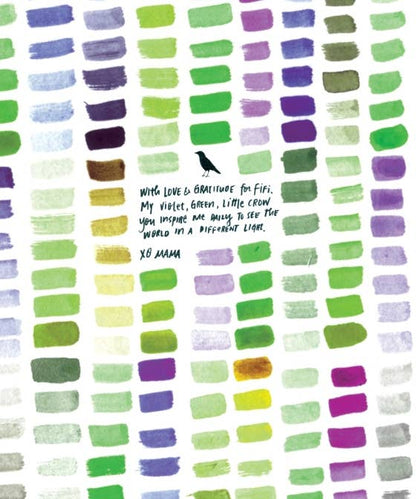 With LOVE & GRATITUDE for FiFi.
My Violet, GREEN, Little CROW
you inspire me DAILY TO SEE THE
WORLD IN A DIFFERENT LIGHT.
XO MAMA